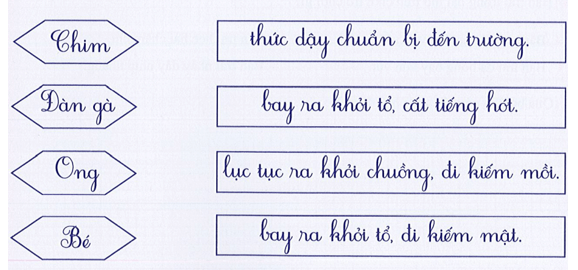 Chim
thức dậy chuẩn bị đến trường.
Đàn gà
bay ra khỏi tổ, cất tiếng hót.
Ong
lục tục ra khỏi chuồng, đi kiếm mồi.
Bé
bay ra khỏi tổ, đi kiếm mật.